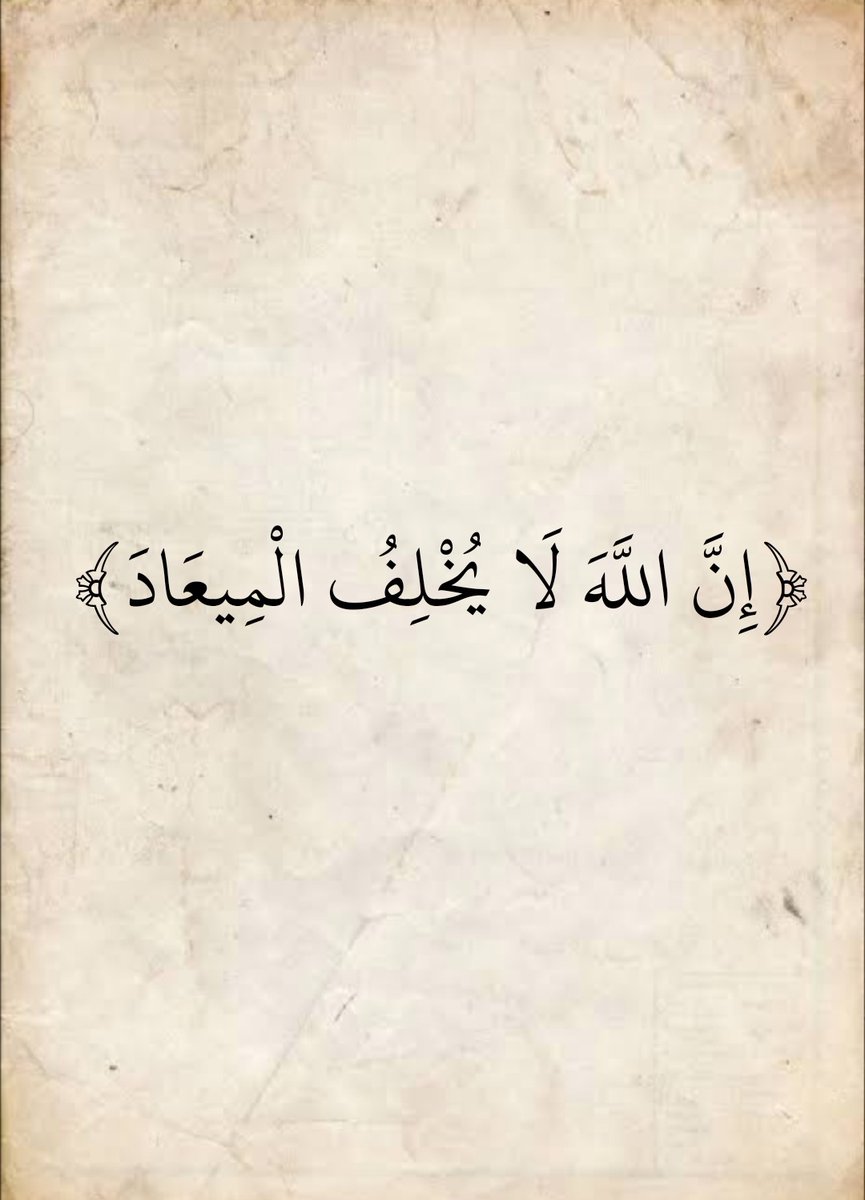 ﴿إِنَّ اللَّهَ لَا يُخْلِفُ الْمِيعَادَ﴾